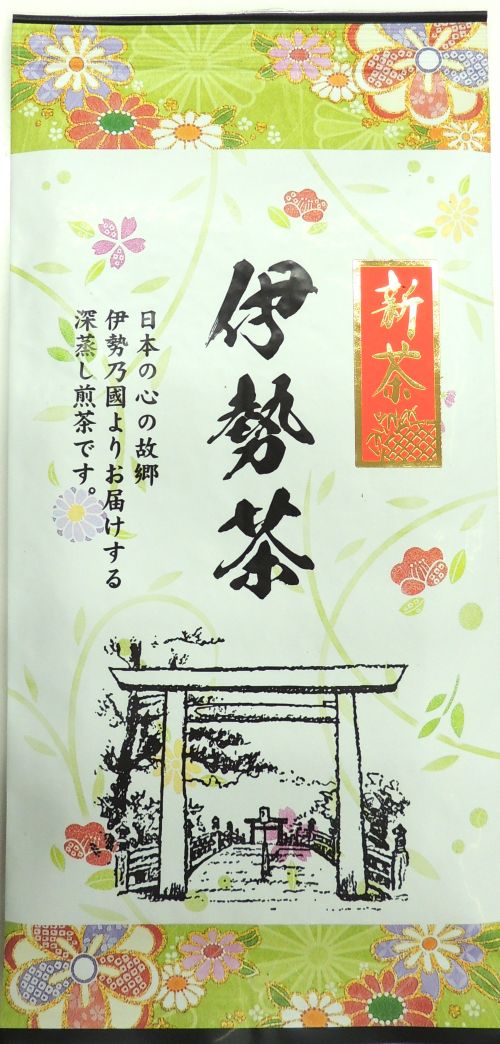 新茶
伊勢茶
日本の心の故郷
伊勢乃國よりお届けする
深蒸し煎茶です。